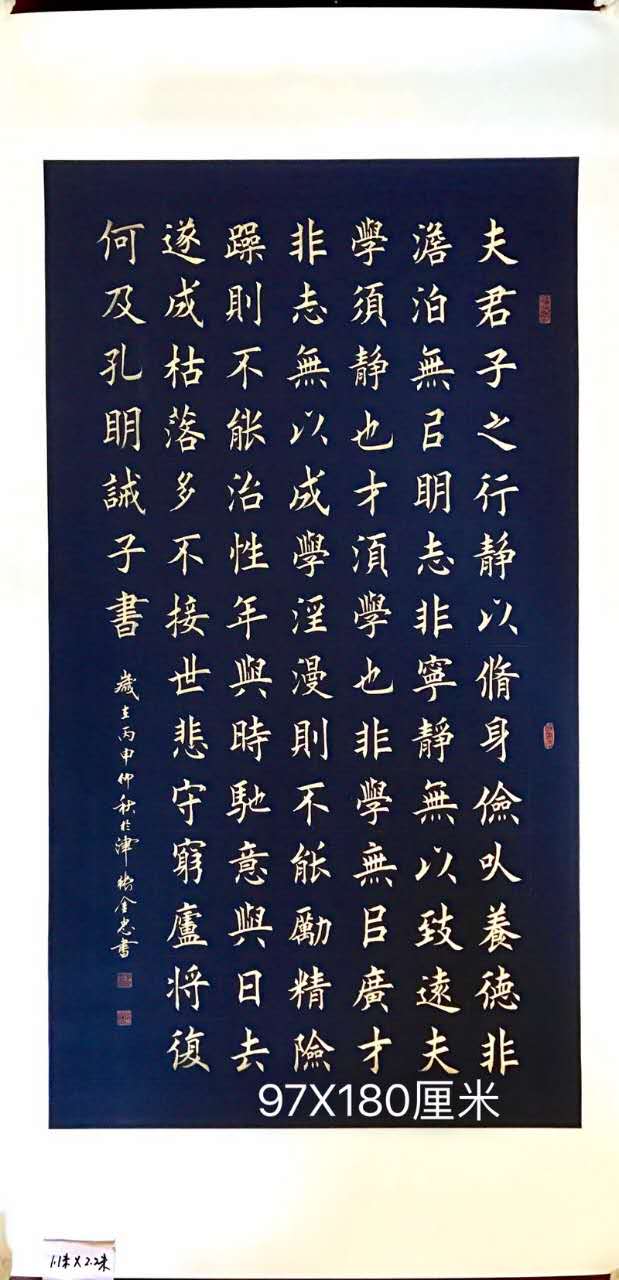 夫君子之行静以脩身儉㕥養德非
澹泊無㠯明志非寧靜無以致遠夫
學須靜也才湏學也非學無㠯廣才
非志無以成學淫漫則不能勵精險
躁則不能治性年與時馳意與日去
遂成枯落多不接世悲守窮廬将復
何及孔明誡子書
歲在丙申仲秋於津金忠書
97X180厘米
1.1米X2.2米